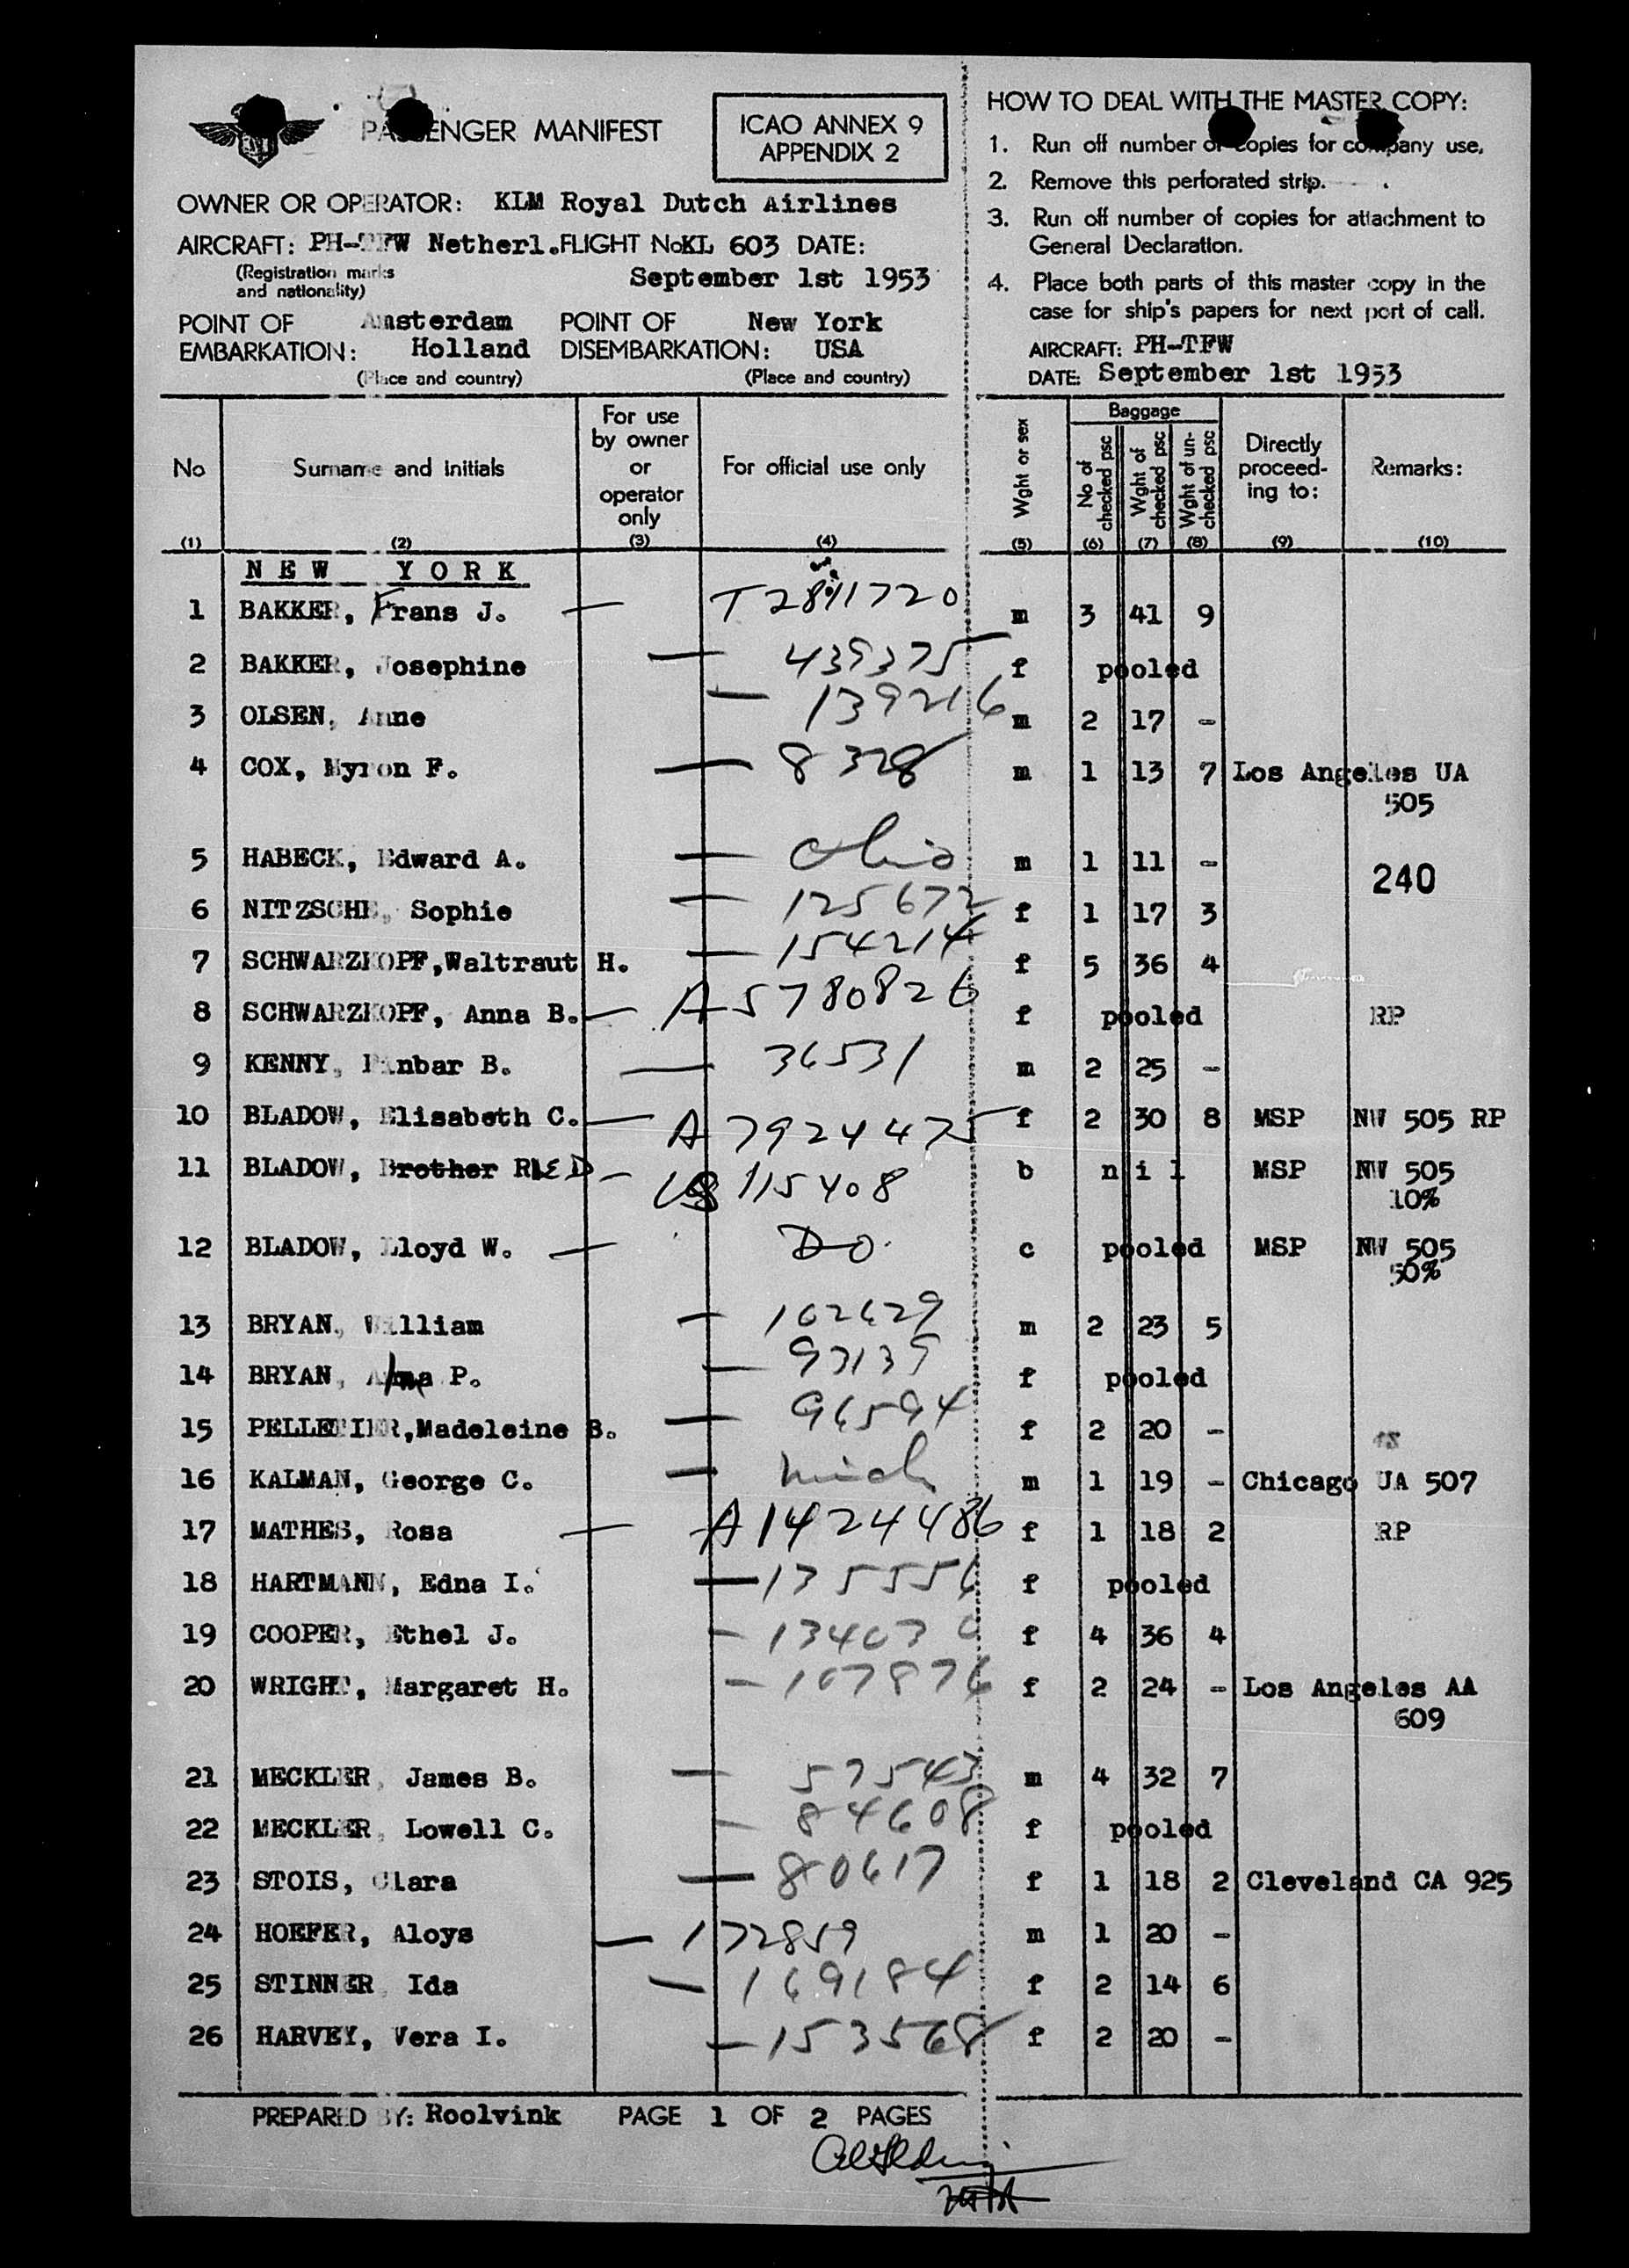 PASSENGER MANIFEST
ICAO ANNEX 9
APPENDIX 2
OWNER OR OPERATOR: KLM Royal Dutch Airlines
AIRCRAFT: PH-TFW Netherl. FLIGHT No KL 603 DATE:
(Registration marks
and nationality)
September 1st 1953
POINT OF EMBARKATION: Amsterdam Holland
(Place and country)
POINT OF DISEMBARKATION: New York USA
(Place and country)
HOW TO DEAL WITH THE MASTER COPY:
1. Run off number of copies for company use.
2. Remove this perforated strip.
3. Run off number of copies for attachment to
General Declaration.
4. Place both parts of this master copy in the
case for ship's papers for next port of call.
AIRCRAFT: PH-TFW
DATE: September 1st 1953
No (1)
Surname and initials (2)
For use by owner or operator only (3)
For official use only (4)
Wght or sex (5)
Baggage
No of checked psc (6)
Wght of checked psc (7)
Wght of un-checked psc (8)
Directly proceed-ing to: (9)
Remarks: (10)
NEW YORK
1 BAKKER, Frans J. — T2811720 m 3 41 9
2 BAKKER, Josephine — 439375 f pooled
3 OLSEN, Anne — 139216 m 2 17 -
4 COX, Myron F. — 8328 m 1 13 7 Los Angeles UA
505
5 HABECK, Edward A. — Ohio m 1 11 -
240
6 NITZSCHE, Sophie — 125672 f 1 17 3
7 SCHWARZKOPF, Waltraut H. — 154214 f 5 36 4
8 SCHWARZKOPF, Anna B. — A5780826 f pooled RP
9 KENNY, B. — 36531 m 2 25 -
10 BLADOW, Elisabeth C. — A7924475 f 2 30 8 MSP NW 505 RP
11 BLADOW, Brother RIED — US 115408 b nil MSP NW 505
10%
12 BLADOW, Lloyd W. — DO. c pooled MSP NW 505
50%
13 BRYAN, William — 162629 m 2 23 5
14 BRYAN, Alma P. — 97139 f pooled
15 PELLETIER, Madeleine B. — 96594 f 2 20 -
16 KALMAN, George C. — Mich m 1 19 - Chicago UA 507
17 MATHES, Rosa — A1424486 f 1 18 2 RP
18 HARTMANN, Edna I. — 135556 f pooled
19 COOPER, Ethel J. — 134030 f 4 36 4
20 WRIGHT, Margaret H. — 167876 f 2 24 - Los Angeles AA
609
21 MECKLER, James B. — 57543 m 4 32 7
22 MECKLER, Lowell C. — 84608 f pooled
23 STOIS, Clara — 80617 f 1 18 2 Cleveland CA 925
24 HOEFER, Aloys — 172859 m 1 20 -
25 STINNER, Ida — 169184 f 2 14 6
26 HARVEY, Vera I. — 153568 f 2 20 -
PREPARED BY: Roolvink PAGE 1 OF 2 PAGES